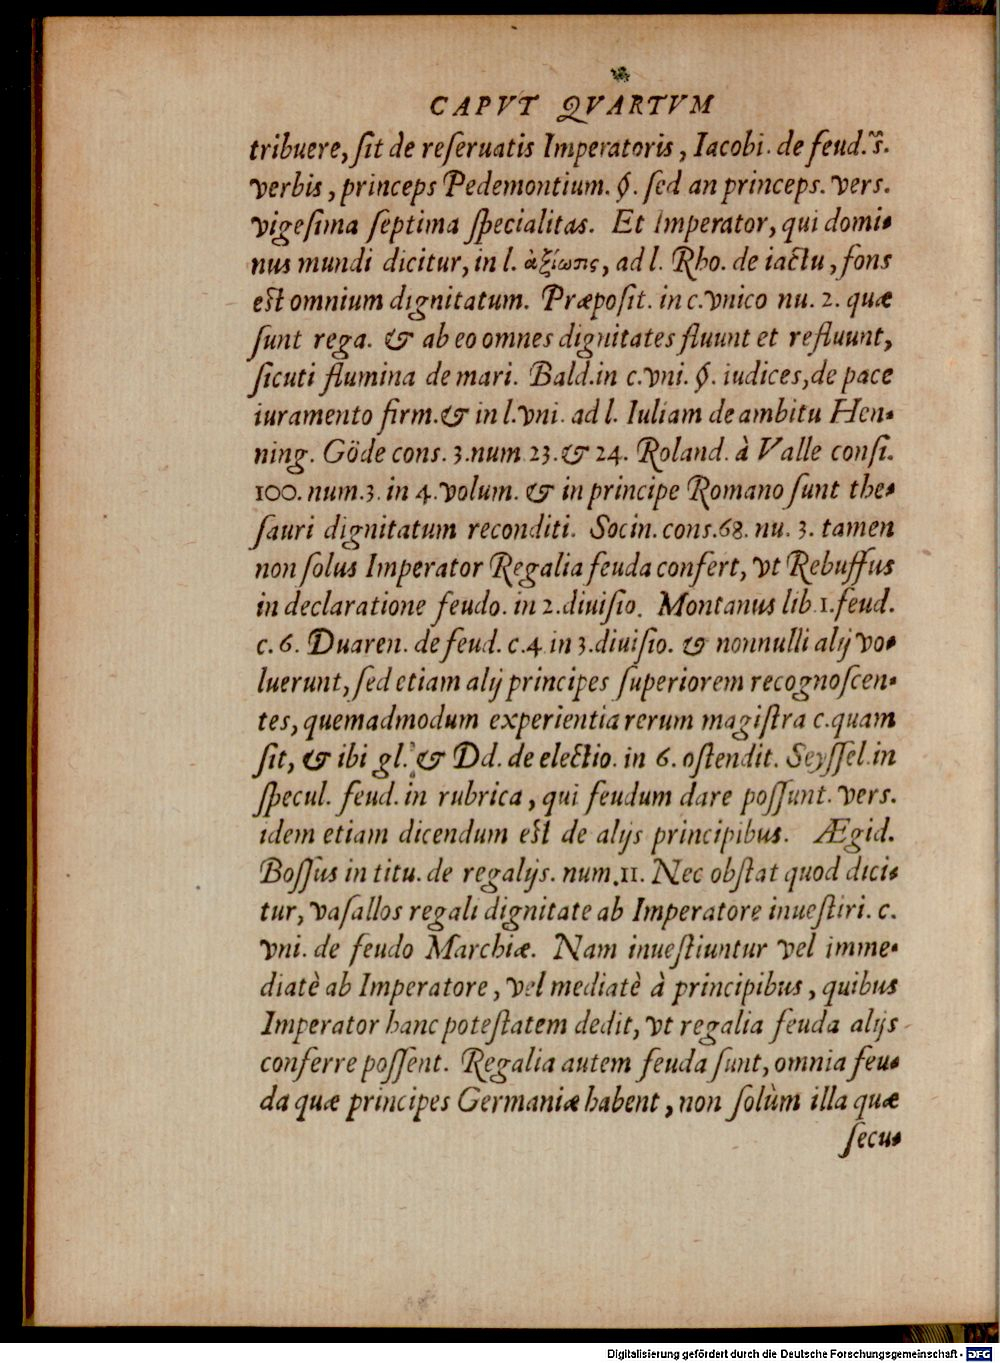 CAPVT QVARTVM
tribuere, ſit de reſeruatis Imperatoris, Iacobi. de feud. ṽs.
verbis, princeps Pedemontium. §. ſed an princeps. vers.
vigeſima ſeptima ſpecialitas. Et Imperator, qui domi-
nus mundi dicitur, in l. ἀξίωσις, ad l. Rho. de iactu, fons
est omnium dignitatum. Præpoſit. in c. vnico nu. 2. quæ
ſunt rega. & ab eo omnes dignitates fluunt et refluunt,
ſicuti flumina de mari. Bald. in c. vni. §. iudices, de pace
iuramento firm. & in l. vni. ad l. Iuliam de ambitu Hen-
ning. Göde cons. 3. num 23. & 24. Roland. à Valle conſi.
100. num. 3. in 4. volum. & in principe Romano ſunt the-
ſauri dignitatum reconditi. Socin. cons. 68. nu. 3. tamen
non ſolus Imperator Regalia feuda confert, vt Rebuffus
in declaratione feudo. in 2. diuiſio. Montanus lib. 1. feud.
c. 6. Duaren. de feud. c. 4. in 3. diuiſio. & nonnulli alij vo-
luerunt, ſed etiam alij principes ſuperiorem recognoſcen-
tes, quemadmodum experientia rerum magiſtra c. quam
ſit, & ibi gl. & Dd. de electio. in 6. oſtendit. Seyſſel. in
ſpecul. feud. in rubrica, qui feudum dare poſſunt. vers.
idem etiam dicendum est de alijs principibus. Ægid.
Boſſus in titu. de regalijs. num. 11. Nec obſtat quod dici-
tur, vaſallos regali dignitate ab Imperatore inueſtiri. c.
vni. de feudo Marchiæ. Nam inueſtiuntur vel imme-
diatè ab Imperatore, vel mediatè à principibus, quibus
Imperator hanc poteſtatem dedit, vt regalia feuda alijs
conferre poſſent. Regalia autem feuda ſunt, omnia feu-
da quæ principes Germaniæ habent, non ſolùm illa quæ
ſecu-
Digitalisierung gefördert durch die Deutsche Forschungsgemeinschaft - DFG